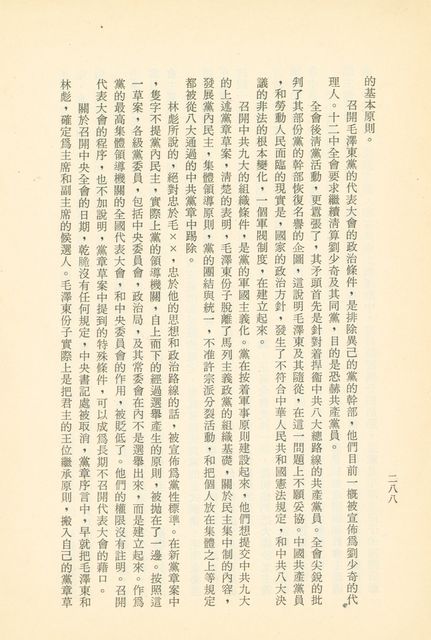 二八八
的基本原則。
召開毛澤東黨的代表大會的政治條件，是排除異己的黨的幹部，他們目前一概被宣佈爲劉少奇的代
理人。十二中全會要求繼續清算劉少奇及其同黨，目的是恐赫共產黨員。
全會後清黨活動，更囂張了，其矛頭首先是針對着捍衞中共八大總路線的共產黨員。全會尖銳的批
判了其部份黨的幹部恢復名譽的企圖，這說明毛澤東及其隨從，在這一問題上不願妥協。中國共產黨員
，和勞動人民面臨的現實是，國家的政治方針，發生了不符合中華人民共和國憲法規定，和中共八大決
議的非法的根本變化，一個軍閥制度，在建立起來。
召開中共九大的組織條件，是黨的軍國主義化。黨在按着軍事原則建設起來，他們想提交中共九大
的上述黨章草案，清楚的表明，毛澤東份子脫離了馬列主義政黨的組織基礎，關於民主集中制的內容，
發展黨內民主，集體領導原則，黨的團結與統一，不准許宗派分裂活動，和把個人放在集體之上等規定
都被從八大通過的中共黨章中踢除。
林彪所說的，絕對忠於毛××，忠於他的思想和政治路線的話，被宣佈爲黨性標準。在新黨章案中
，隻字不提黨內民主，實際上黨的領導機關，自上而下的經過選舉產生的原則，被拋在了一邊。按照這
一草案，各級黨委員，包括中央委員會，政治局，及其常委會在內不是選舉出來，而是建立起來。作爲
黨的最高集體領導機關的全國代表大會，和中央委員會的作用，被貶低了。他們的權限沒有註明。召開
代表大會的程序，也不加說明，黨章草案中提到的特殊條件，可以成爲長期不召開代表大會的藉口。
關於召開中央全會的日期，乾脆沒有任何規定，中央書記處被取消，黨章序言中，早就把毛澤東和
林彪，確定爲主席和副主席的候選人。毛澤東份子實際上是把君主的王位繼承原則，搬入自己的黨章草